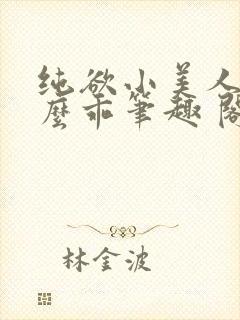 纯欲小美人
麼乖筆趣阁
林金波